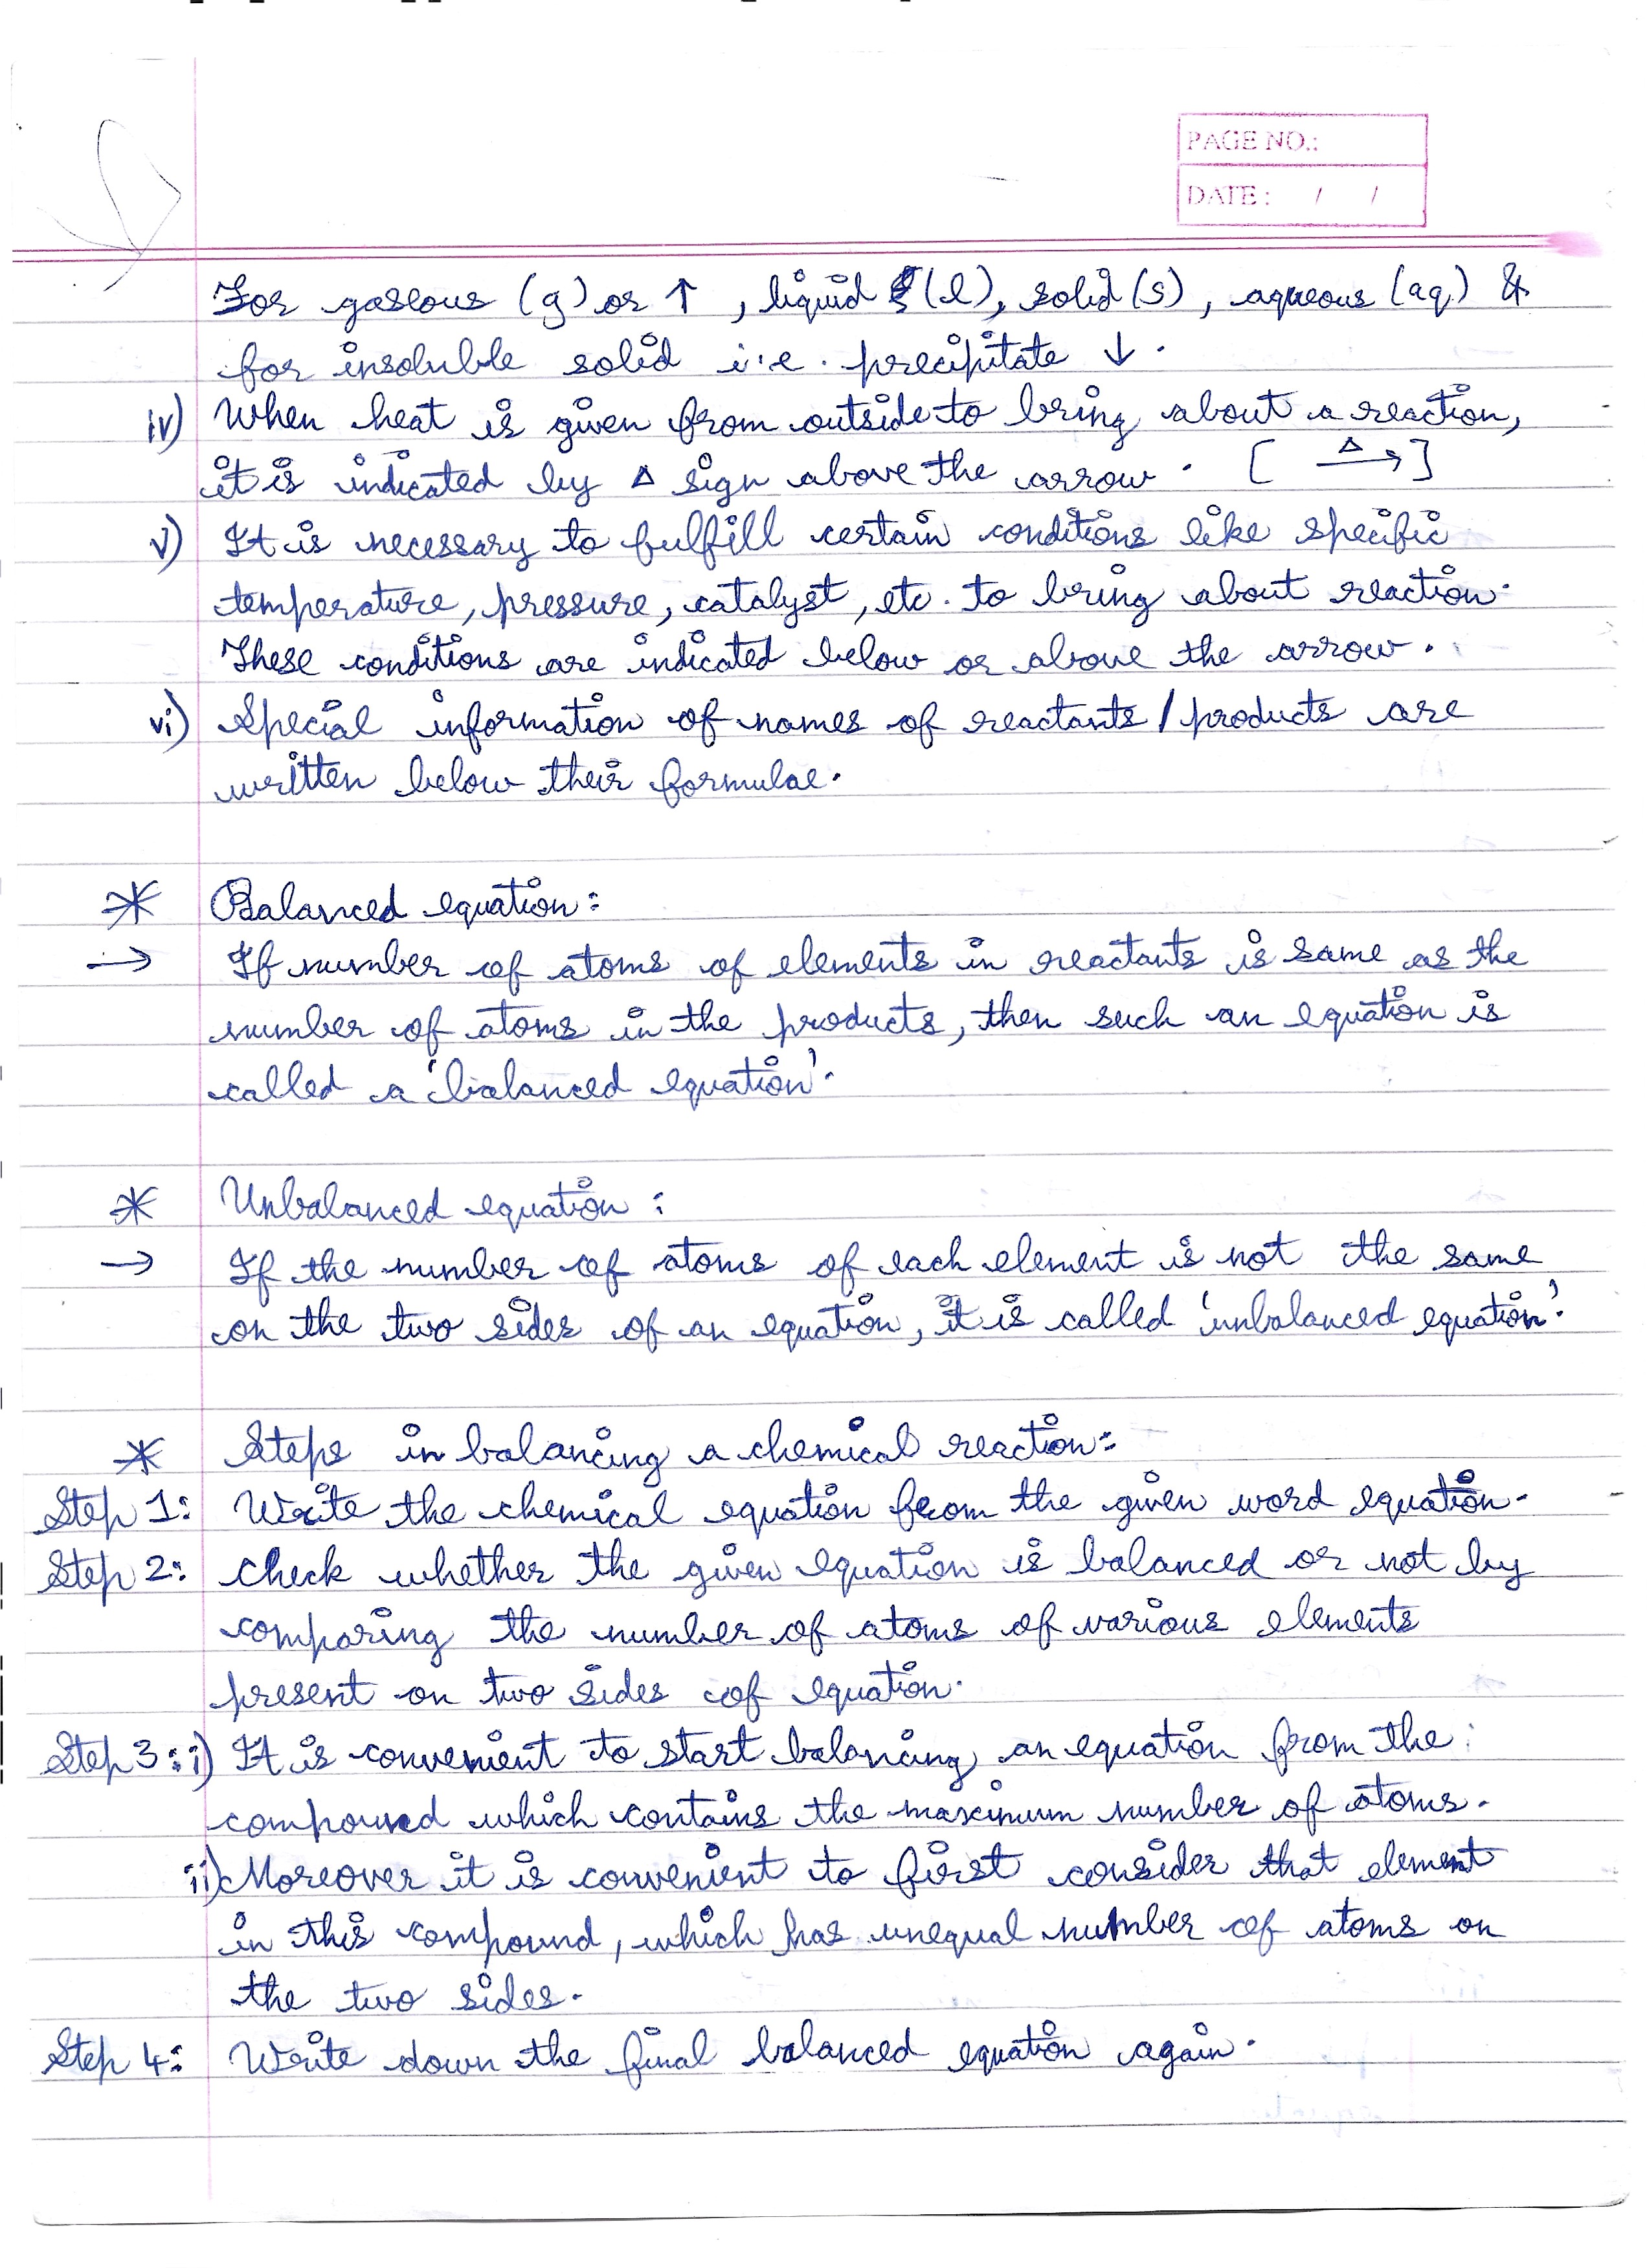 PAGE NO.:
DATE : / /
For gaseous (g) or ↑ , liquid (l), solid (s) , aqueous (aq.) &
for insoluble solid i.e. precipitate ↓ .
iv) When heat is given from outside to bring about a reaction,
it is indicated by Δ sign above the arrow . [ Δ→ ]
v) It is necessary to fulfill certain conditions like specific
temperature, pressure, catalyst, etc. to bring about reaction.
These conditions are indicated below or above the arrow .
vi) Special information of names of reactants / products are
written below their formulae.
* Balanced equation :
→ If number of atoms of elements in reactants is same as the
number of atoms in the products, then such an equation is
called a 'balanced equation'.
* Unbalanced equation :
→ If the number of atoms of each element is not the same
on the two sides of an equation, it is called 'unbalanced equation'.
* Steps in balancing a chemical reaction :
Step 1: Write the chemical equation from the given word equation.
Step 2: Check whether the given equation is balanced or not by
comparing the number of atoms of various elements
present on two sides of equation.
Step 3 : i) It is convenient to start balancing an equation from the
compound which contains the maximum number of atoms.
ii) Moreover it is convenient to first consider that element
in this compound, which has unequal number of atoms on
the two sides.
Step 4: Write down the final balanced equation again.